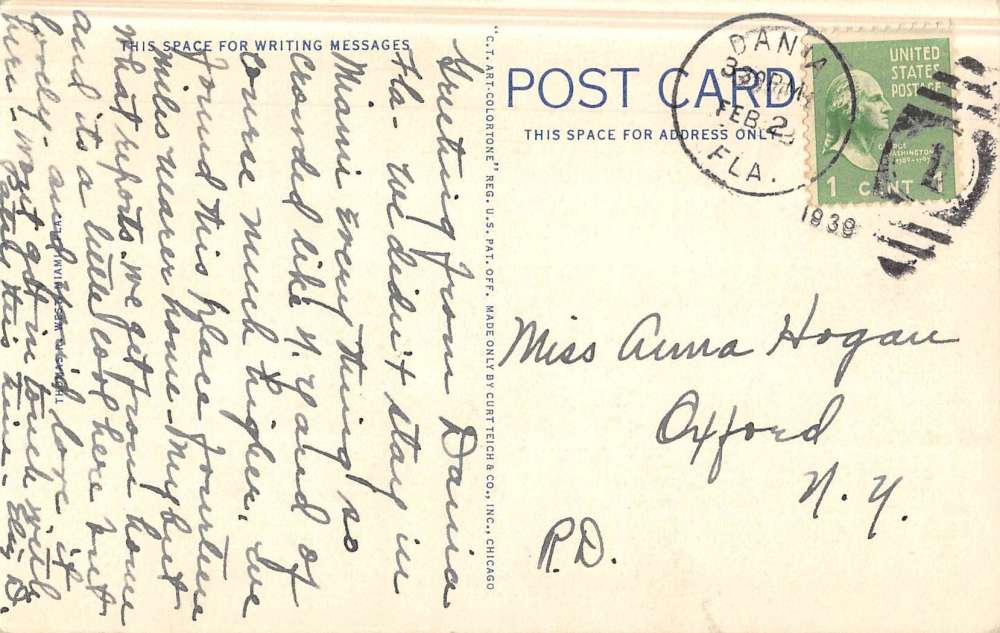 THIS SPACE FOR WRITING MESSAGES
POST CARD
THIS SPACE FOR ADDRESS ONLY
DANIA
FEB 2
FLA.
1939
UNITED
STATES
POSTAGE
GEORGE
WASHINGTON
1 CENT 1
Greeting from Dania
Fla - we didn't stay in
Miami every thing so
crowded like N.Y. and of
course much higher. We
found this place fourteen
miles nearer home - My but
what reports we get from home
and its a little cool here but
lovely - and I love it
here
this time
"C. T. ART-COLORTONE" REG. U. S. PAT. OFF. MADE ONLY BY CURT TEICH & CO., INC., CHICAGO
Miss Anna Hogan
Oxford
N. Y.
R.D.